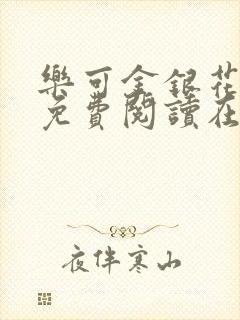 樂可金銀花
免費閱讀在
夜伴寒山